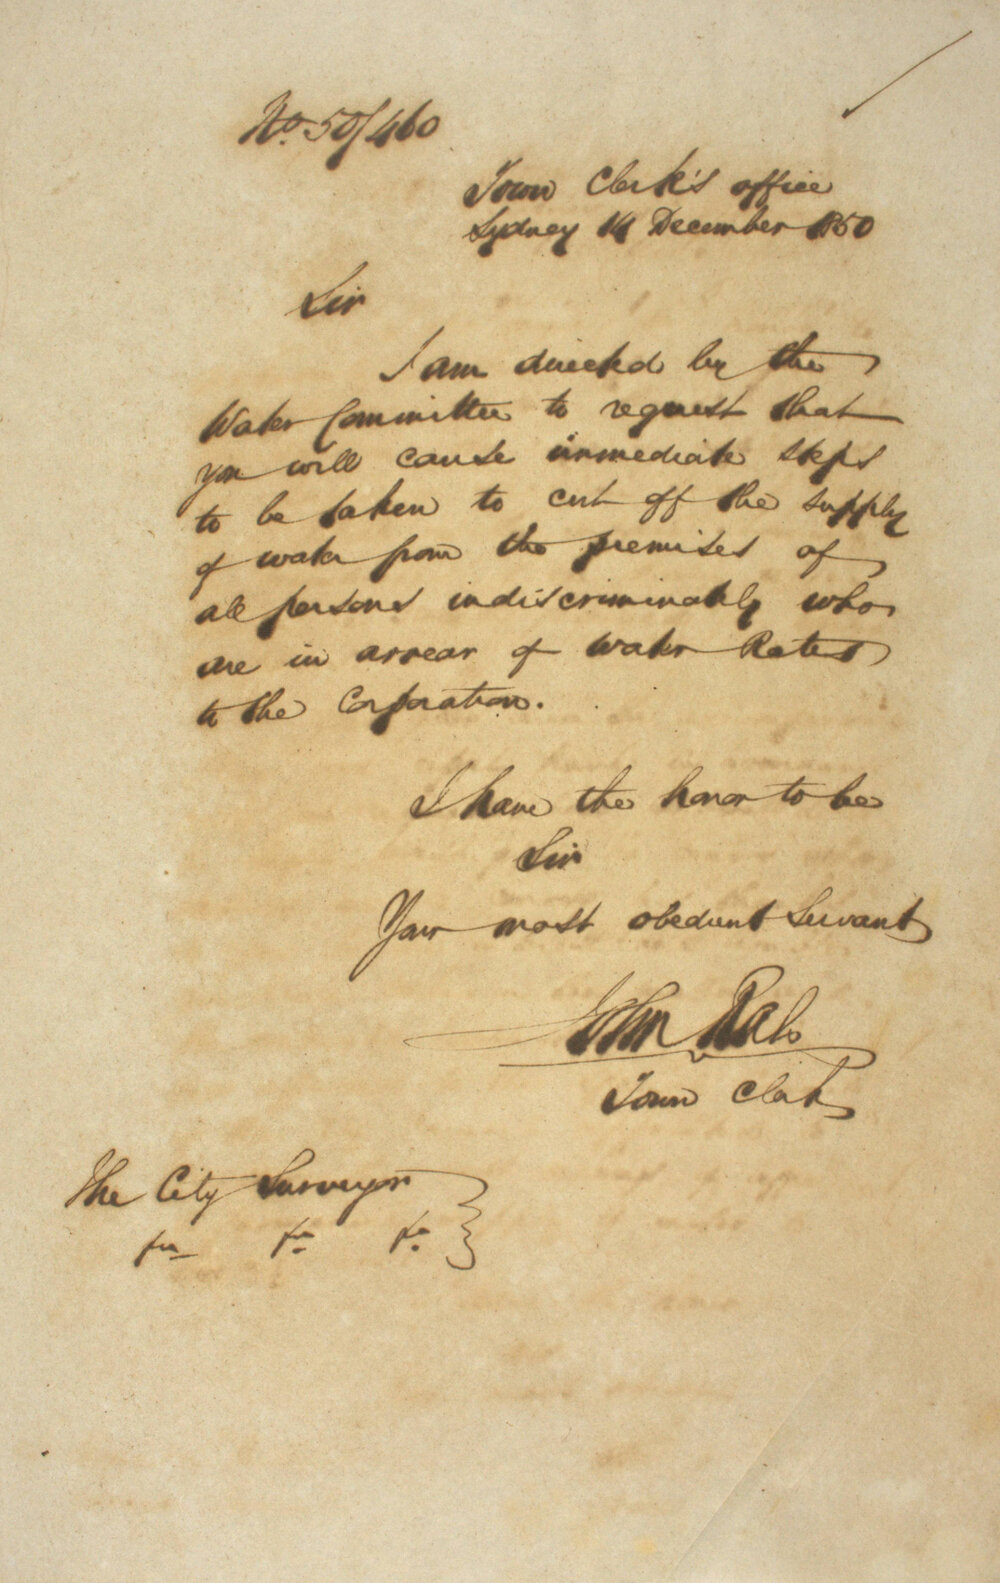 No. 50/460
Town Clerk's office
Sydney 14 December 1850
Sir
I am directed by the
Water Committee to request that
you will cause immediate steps
to be taken to cut off the supply
of water from the premises of
all persons indiscriminately who
are in arrear of Water Rates
to the Corporation.
I have the honor to be
Sir
Your most obedient Servant
John Rae
Town Clerk
The City Surveyor